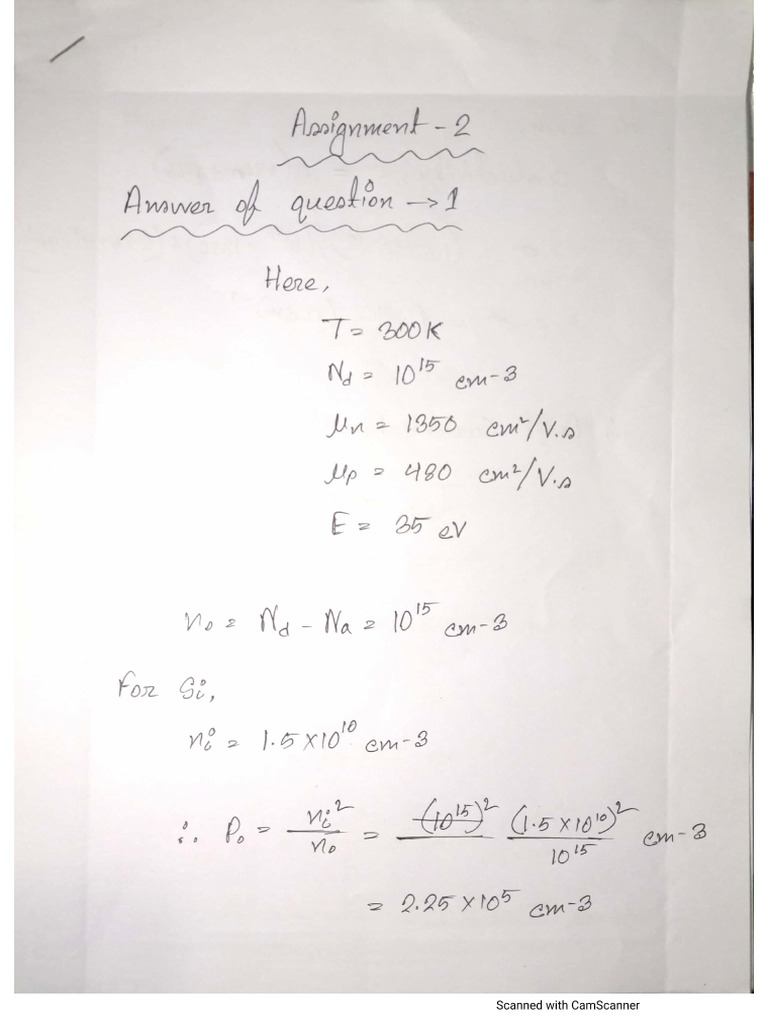 Assignment - 2
Answer of question → 1
Here,
T = 300K
Nd = 10^15 cm-3
μn = 1350 cm²/V.s
μp = 480 cm²/V.s
E = 35 eV
n₀ = Nd - Na = 10^15 cm-3
For Si,
ni = 1.5×10^10 cm-3
∴ P₀ = ni²/n₀ = (10^15)² (1.5×10^10)²/10^15 cm-3
= 2.25×10^5 cm-3
Scanned with CamScanner